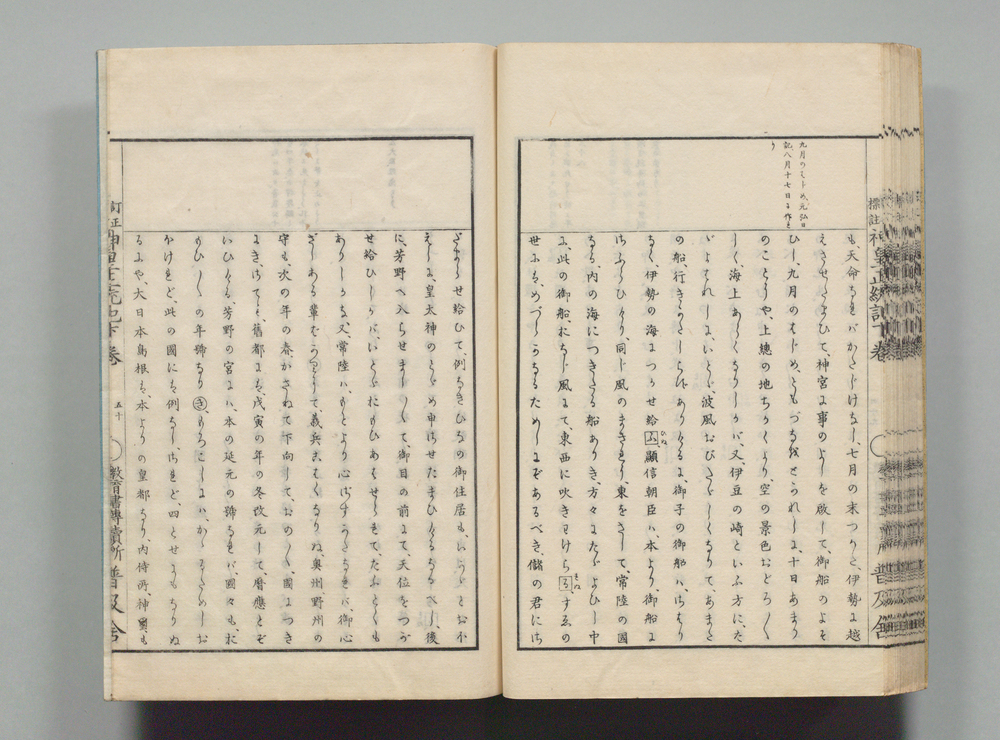 九月のはじめ、元弘日
記、八月十七日に作れ
り
も、天命なれバかたじけなし、七月の末つかた、伊勢に越
えさせたまひて、神宮に事のよしを啓して、御船のよそ
ひし、九月のはじめ、ともづなをとかれしに、十日あまり
のことにや、上總の地ちかくより、空の景色おどろ〳〵
しく、海上あらくなりしかバ、又、伊豆の崎といふ方に、た
ゞよはれしに、いとゞ、波風おびたゞしくなりて、あまた
の船、行きがたしらずありけるに、御子の御船ハ、さはり
なく、伊勢の海につかせ給ふ、顯信朝臣ハ、本より、御船に
さぶらひけり、同じ風のまぎれに、東をさして、常陸の國
なる、内の海につきたる船ありき、方々にたゞよひし中
に、此の御船おなじ風にて、東西に吹きわけける、すゑの
世にも、めづらかなるためしにぞあるべき、儲の君にさ
だまらせ給ひて、例なきひなの御住居も、いかゞとおぼ
えしに、皇太神のとゞめ申させたまひけるなるべし、後
に、芳野へ入らせまし〳〵て、御目の前にて、天位をつが
せ給ひしかバ、いとゞおもひあはせられて、たふとくも
ありしかな、又、常陸ハ、もとより心ざすかたなれバ、御心
ざしある輩をかたらひて義兵こはくなりぬ、奥州、野州の
守も、次の年の春かさねて下向して、おの〳〵、國につき
にき、さても、舊都にも、戊寅の年の冬改元して、暦應とぞ
いひける、芳野の宮にハ、本の延元の號なれバ、國々も、お
もひ〳〵の年號なり、き、もろこしにハ、かゝるためしお
ほけれど、此の國にも例なし、されど四とせにもなりぬ
るにや、大日本島根は、本よりの皇都なり、内侍所、神璽も
訂正神皇正統記下卷 五十 教育書專賣所 普及舍